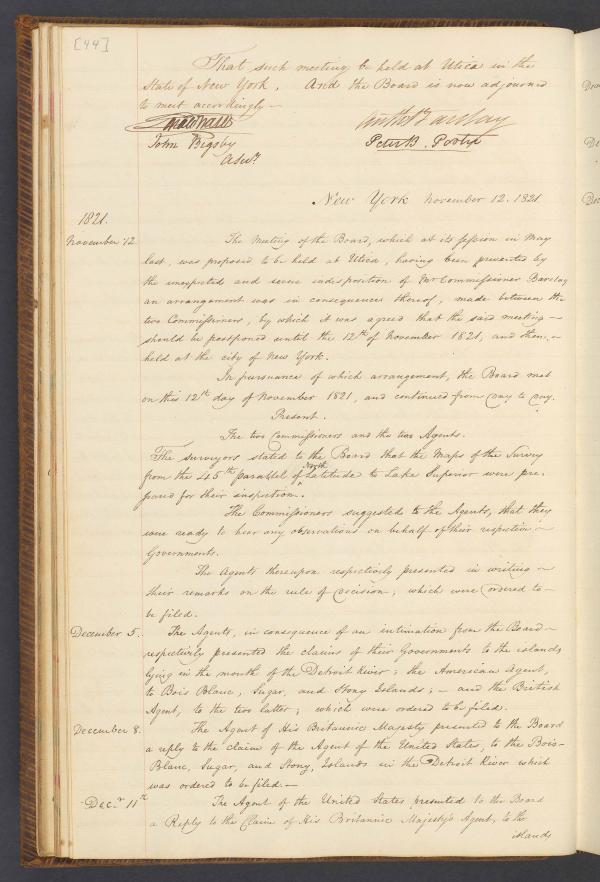 [44]
That such meeting be held at Utica in the
State of New York. And the Board is now adjourned
to meet accordingly—
Anth Barclay
John Bigsby
Peter B. Porter
Asst.
New York November 12. 1821
1821.
November 12
The Meeting of the Board, which at its session in May
last, was proposed to be held at Utica, having been prevented by
the unexpected and severe indisposition of Mr Commissioner Barclay
an arrangement was in consequence thereof, made between the
two Commissioners, by which it was agreed that the said meeting—
should be postponed until the 12th of November 1821, and then—
held at the city of New York.
In pursuance of which arrangement, the Board met
on this 12th day of November 1821, and continued from day to day.
Present.
The two Commissioners and the two Agents.
The Surveyors stated to the Board that the Maps of the Survey
from the 45th parallel of North Latitude to Lake Superior were pre-
pared for their inspection.
The Commissioners suggested to the Agents, that they
were ready to hear any observations on behalf of their respective—
Governments.
The Agents thereupon respectively presented in writing—
their remarks on the rule of decision; which were ordered to—
be filed.
December 5.
The Agents, in consequence of an intimation from the Board—
respectively presented the claims of their Governments to the islands
lying in the mouth of the Detroit River; the American Agent,
to Bois Blanc, Sugar, and Stony Islands;— and the British
Agent, to the two latter; which were ordered to be filed.
December 8.
The Agent of His Britannic Majesty presented to the Board
a reply to the claim of the Agent of the United States, to the Bois-
Blanc, Sugar, and Stony, Islands in the Detroit River which
was ordered to be filed.—
Decr 11th
The Agent of the United States, presented to the Board
a Reply to the Claim of His Britannic Majesty's Agent, to the
islands